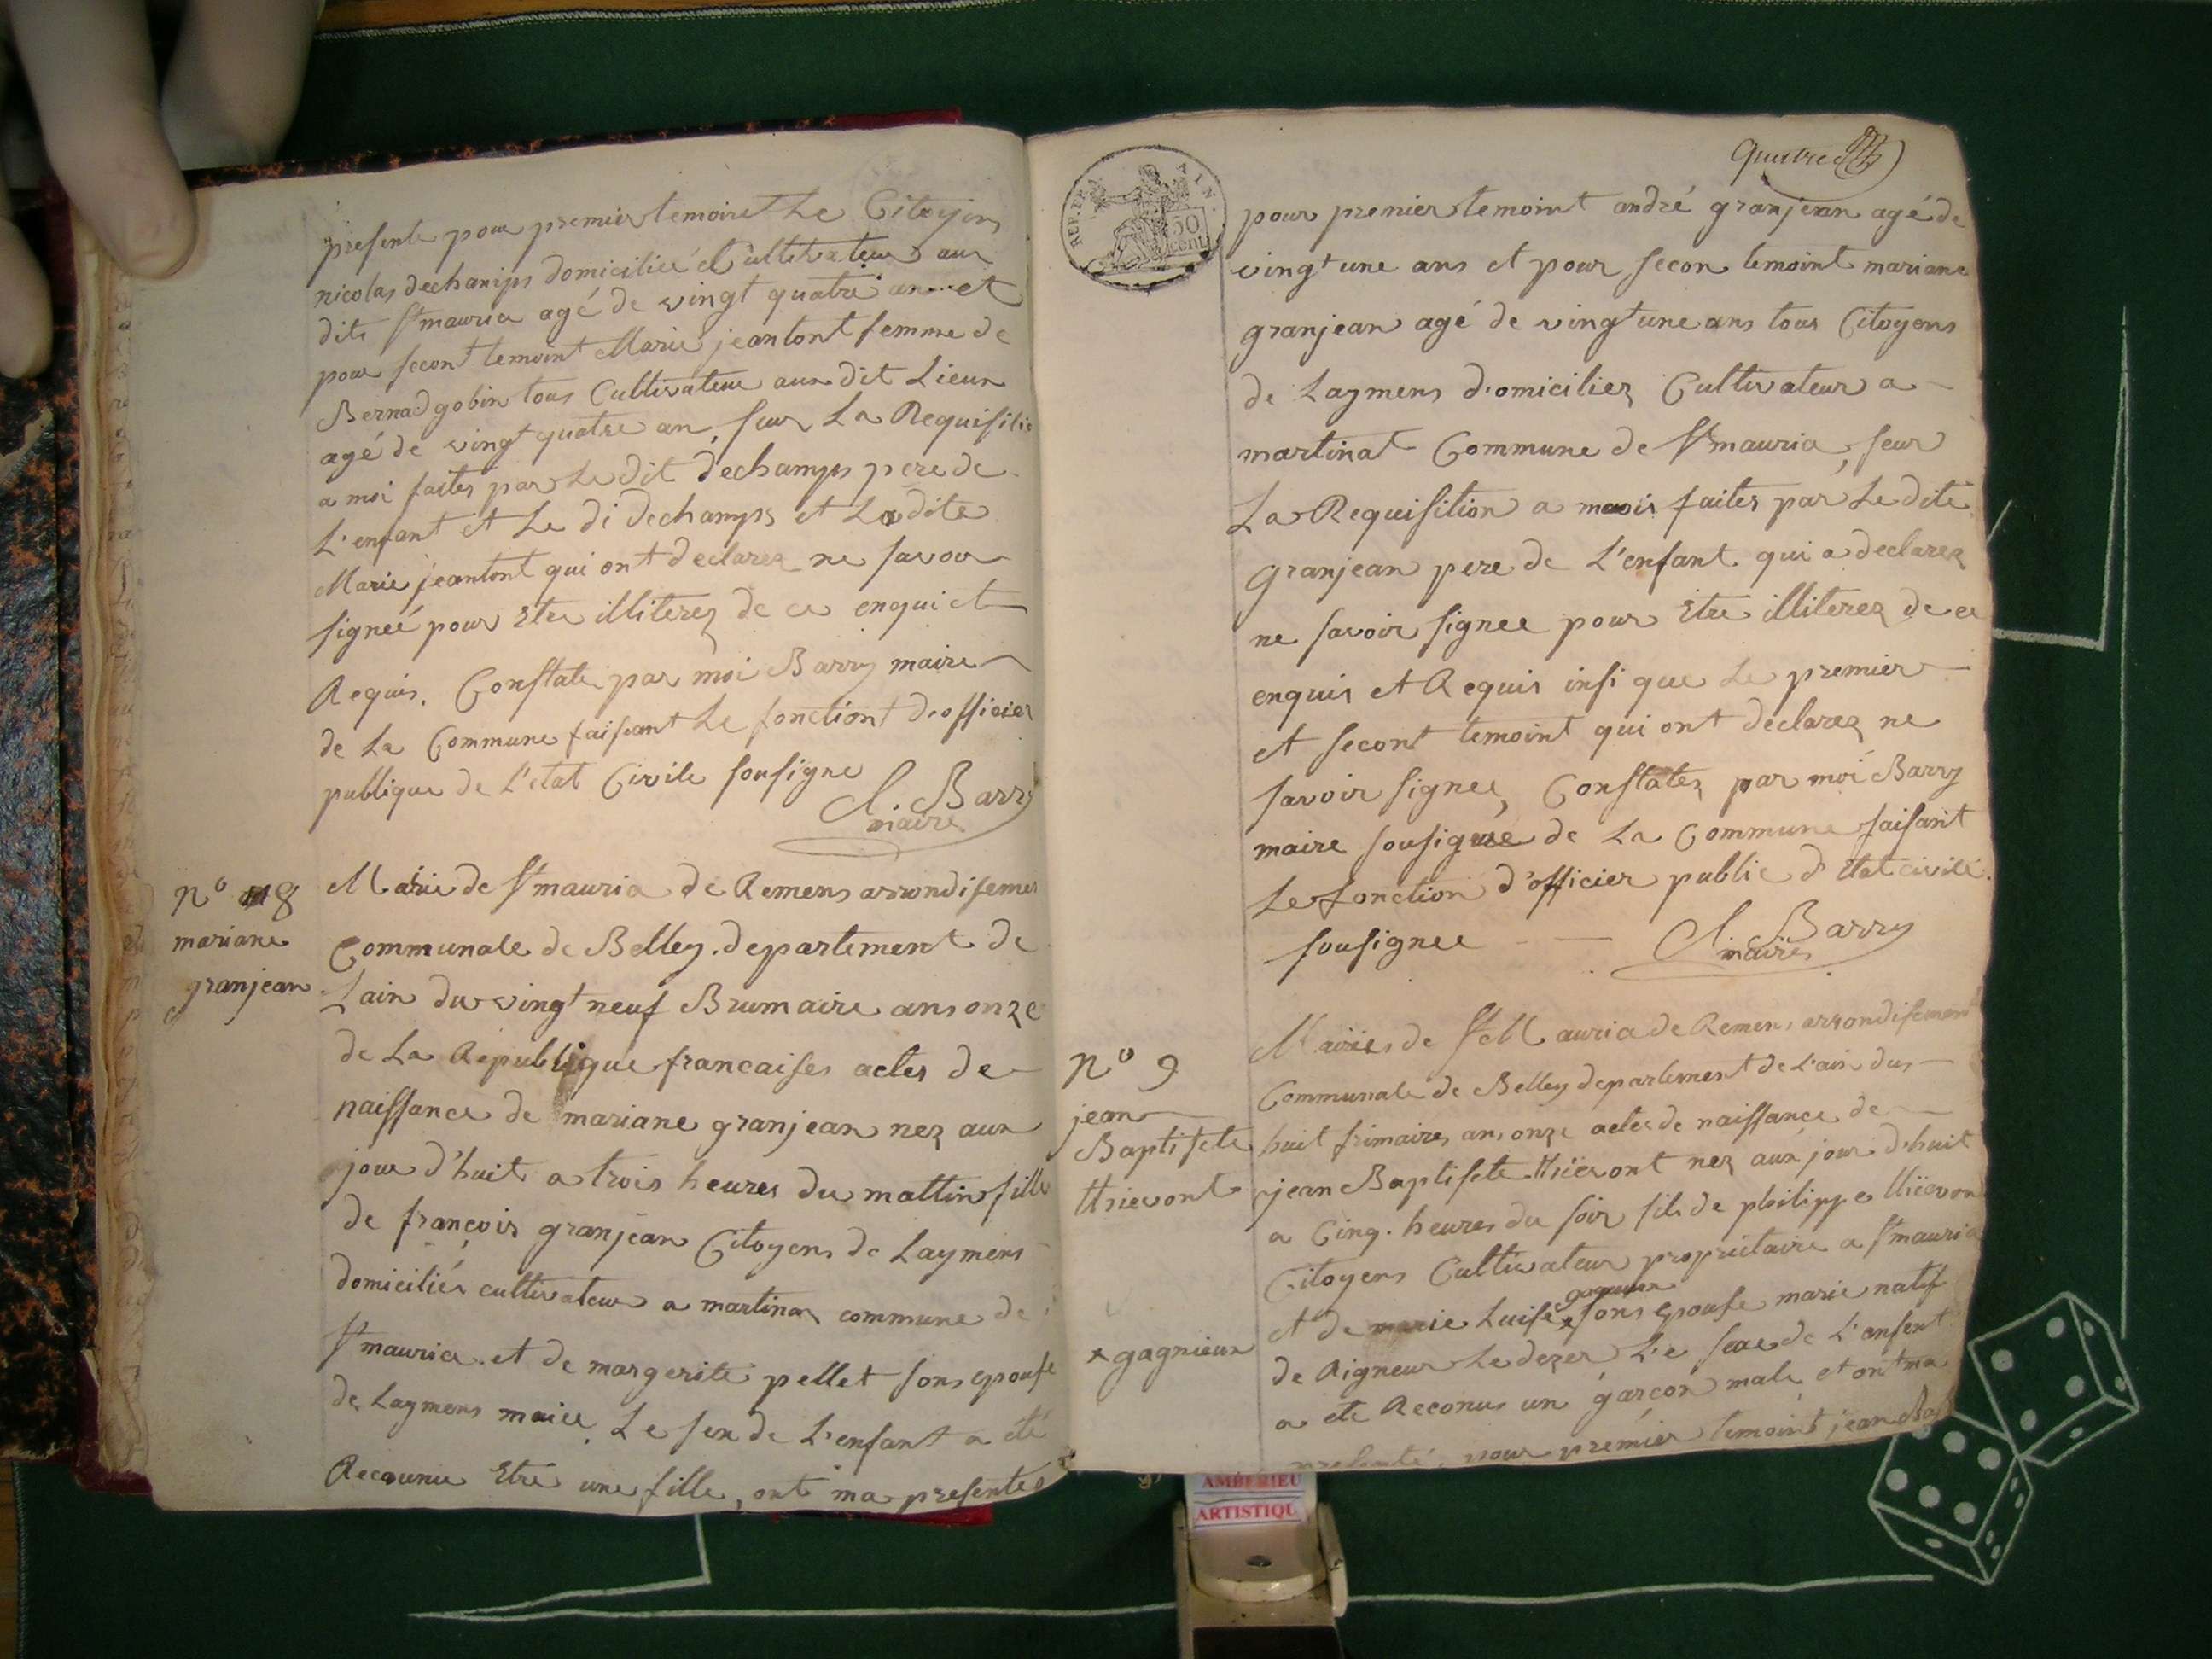 presente pour premier temoint Le Citoyen
nicolas dechamps domicilié et Cultivateur aux
dits St mauria agé de vingt quatre an et
pour secont temoint Marie jeantont femme de
Bernad gobin tous Cultivateur aux dit Lieux
agé de vingt quatre an, seur La Requisitio
a moi faites par Le dit dechamps pere de
L'enfant et Le di dechamps et Ladite
Marie jeantont qui ont declarez ne savoir
signeé pour Etre illiterez de ce enqui et
Requis. Constate par moi Barry maire
de La Commune faisant Le fonctiont d'officier
publique de L'etat Civile sousigne
Cl. Barry
maire
n° 8
mariane
granjean
Mairie de St mauria de Remens arrondisemen
Communale de Belley. departement de
Lain du vingt neuf Brumaire ans onze
de La Republique francaises actes de
naissance de mariane granjean nez aux
jour d'huit a trois heures du mattin fille
de françois granjean Citoyens de Laymens
domiciliés cultivateur a martinas commune de
St mauria. et de margerite pellet sons epouse
de Laymens maiee Le sex de L'enfant a eté
Recounu Etre une fille, ont ma presentes
quatre
REP. FRA
50
cent
pour premier temoint andré granjean agé de
vingt une ans et pour secon temoint mariane
granjean agé de vingt une ans tous Citoyens
de Laymens d'omiciliez Cultivateur a
martinat Commune de St mauria, seur
La Requisition a mois faites par Le dite
granjean pere de L'enfant qui a declarez
ne savoir signee pour Etre illiterez de ce
enquis et Requis insi que Le premier
et secont temoint qui ont declarez ne
savoir signee, Constatez par moi Barry
maire sousignée de La Commune faisant
Le fonction d'officier public d'Etat civile.
sousignee
Cl. Barry
maire
n° 9
jean
Baptiste
thievont
Mairies de St Mauria de Remens arrondisement
Communale de Belley departement de L'ain dus
huit frimaires ans onze actes de naissance de
jean Baptiste thievont nez aux jour d'huit
a Cinq. heures du soir fils de philippe thievon
Citoyens Cultivateur proprietaire a St mauria
gagnieux
et de marie Luise x sons epouse marie natif
x gagnieux
de Aigneux Le dezer L'e sexe de L'enfent
a ete Reconus un garcon male, et ont ma
presenté, pour premier temoint jean Bap
AMBERIEU
ARTISTIQU